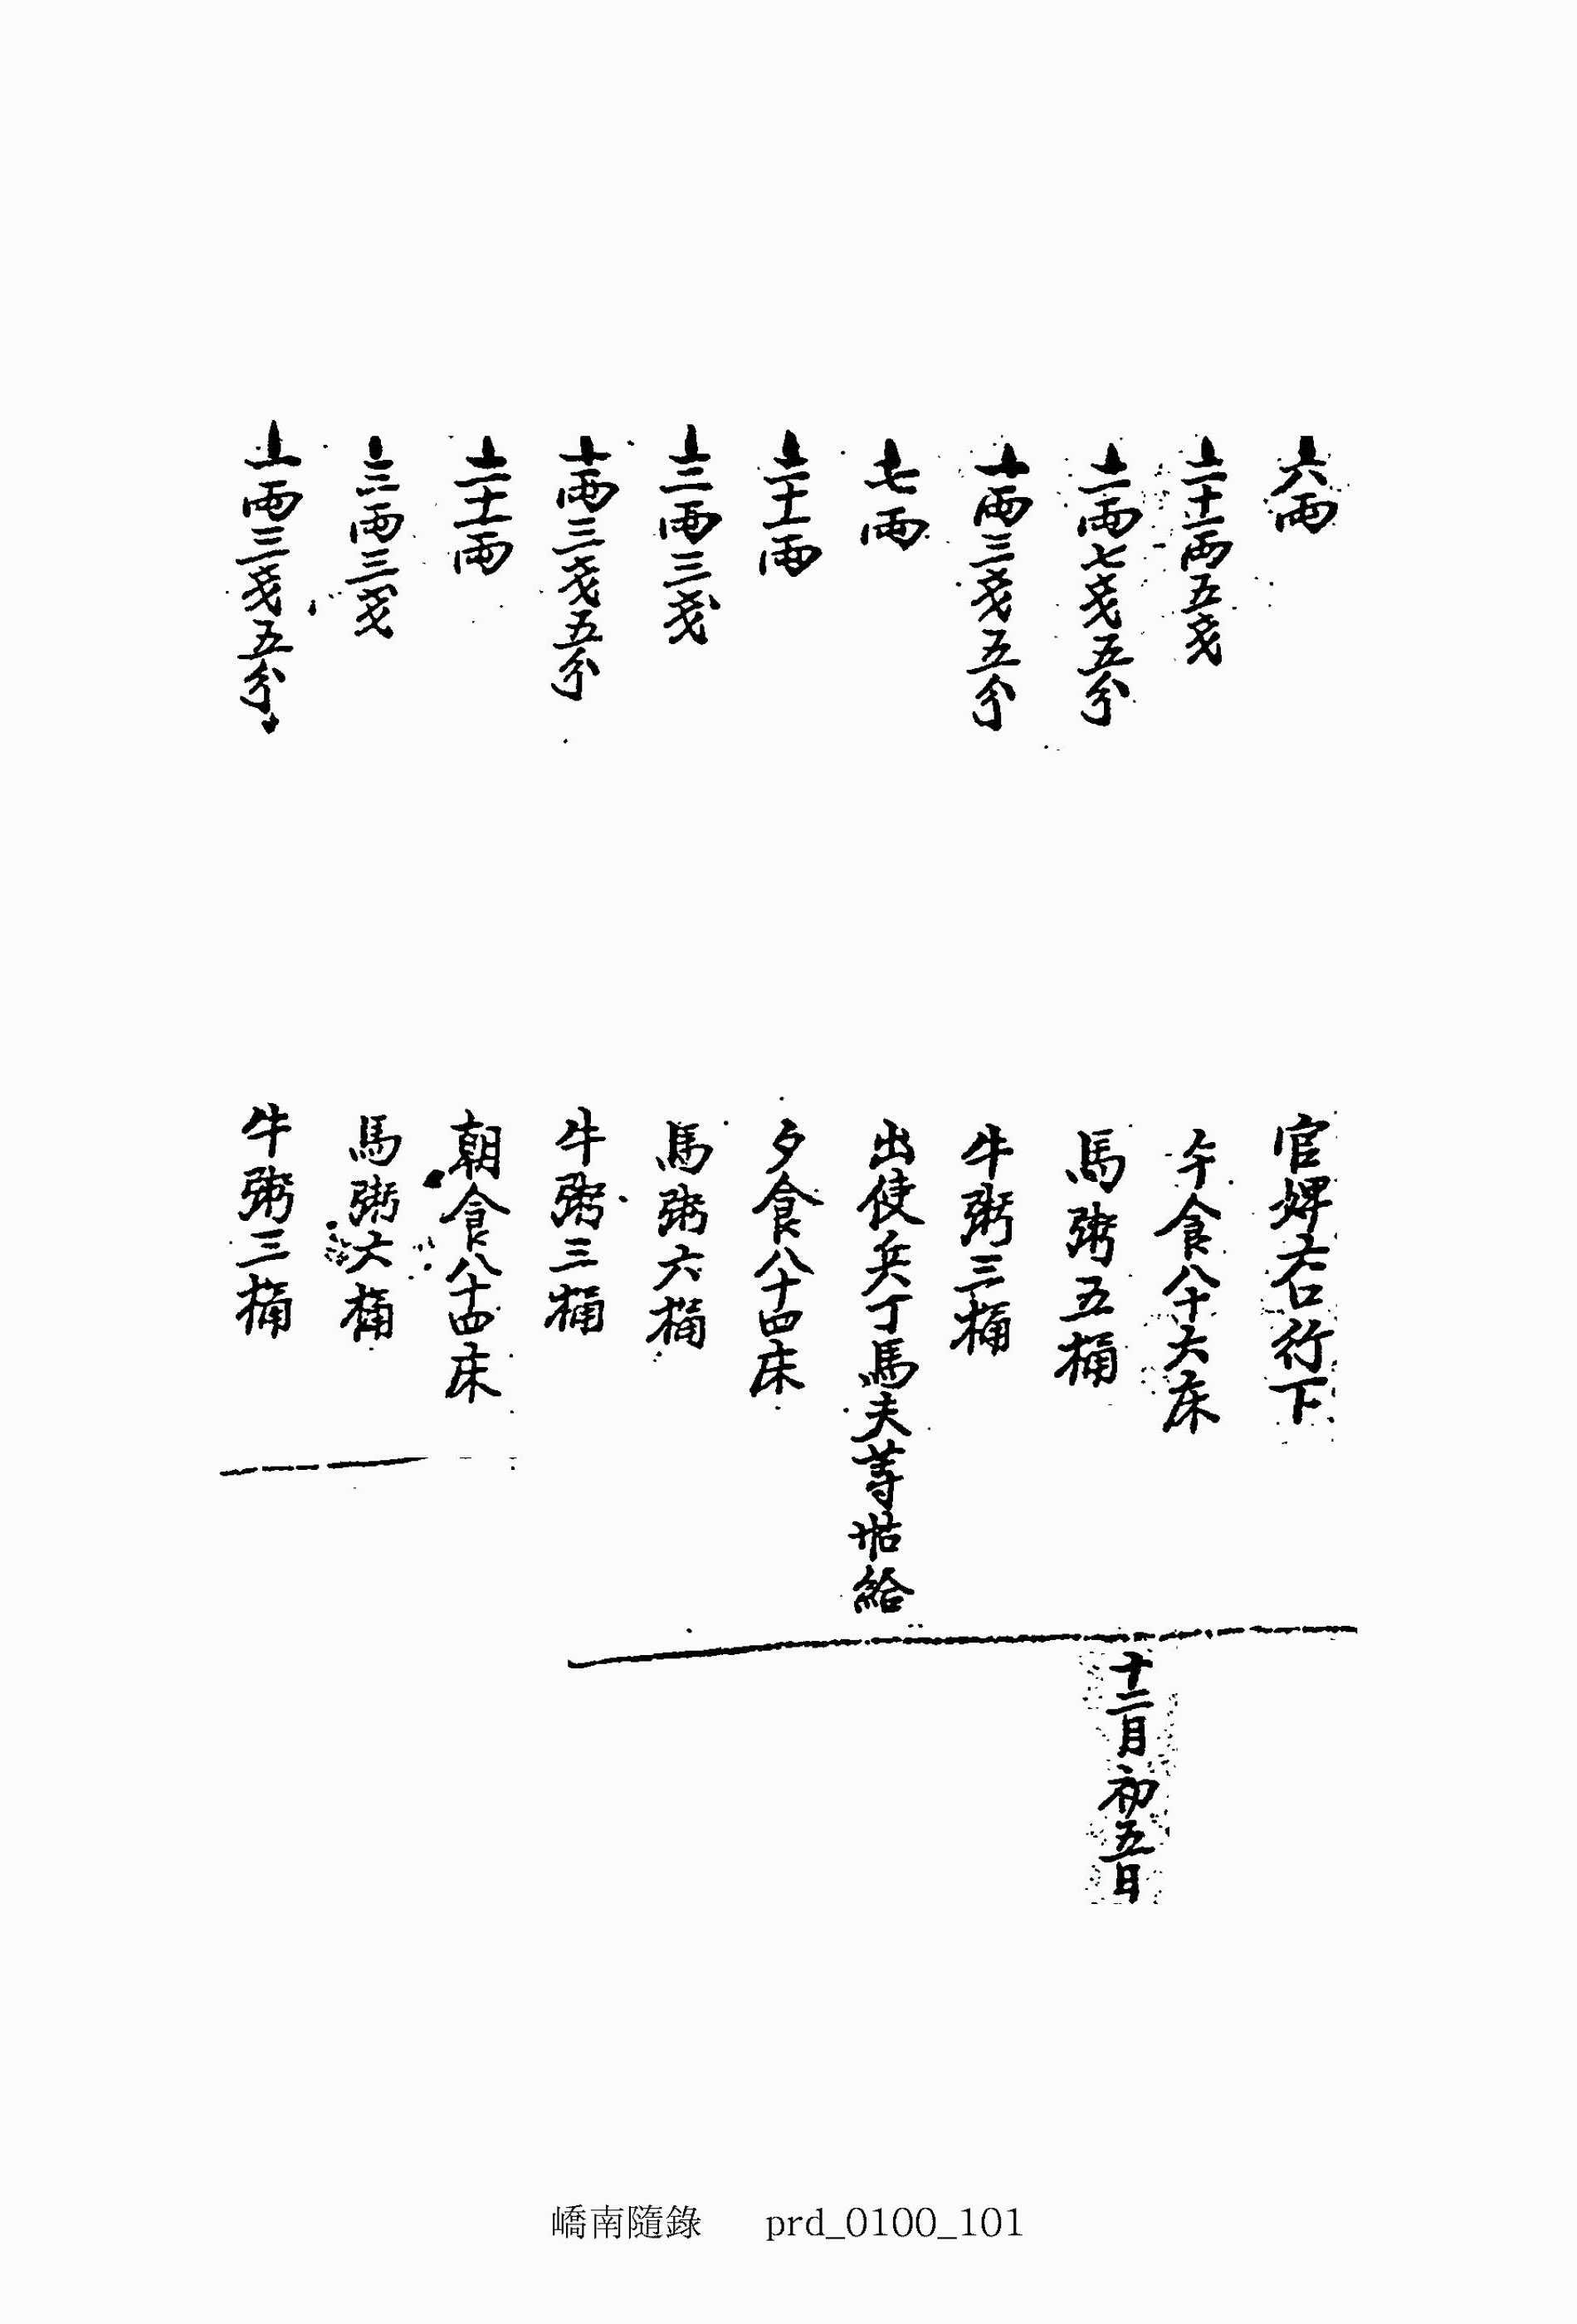 六兩 官婢六口行下
二十一兩五戔 午食八十六床
二兩七戔五分 馬粥五桶
十二月初五日
一兩三戔五分 牛粥三桶
七兩 出使兵丁馬夫等帖給
二十一兩 夕食八十四床
三兩三戔 馬粥六桶
一兩三戔五分 牛粥三桶
二十一兩 朝食八十四床
三兩三戔 馬粥六桶
一兩三戔五分 牛粥三桶
嶠南隨錄 prd_0100_101